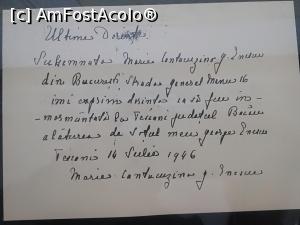 [c] AmFostAcolo®
Ultime Dorințe
Subsemnata Maria Cantacuzino G. Enescu
din București Strada general Manu 16
îmi exprim dorința ca să fiu în-
mormântată la Tescani județul Bacău
alăturea de soțul meu george Enescu
Tescani 14 Iulie 1946
Maria Cantacuzino G. Enescu